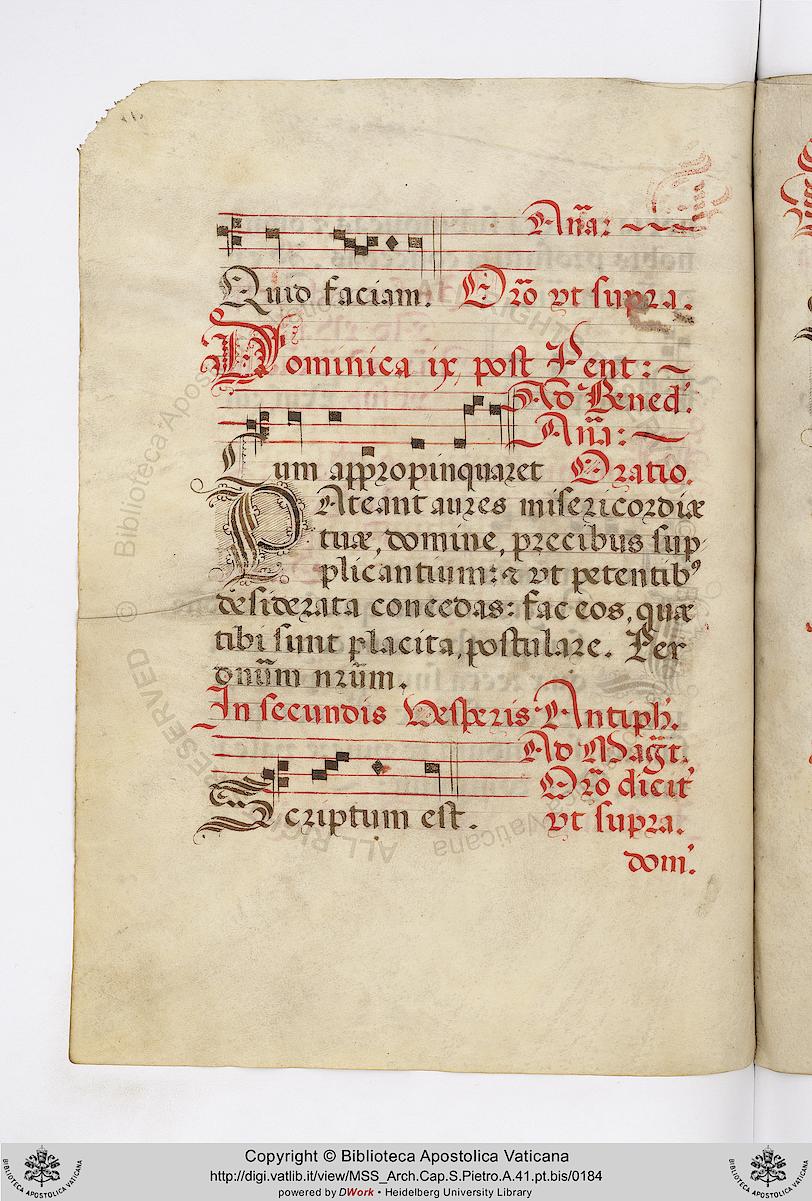 Aña:
Quid faciam. Orõ vt supra.
Dominica ix, post Pent:
Ad Bened.
Aña:
Cum appropinquaret Oratio.
PAteant aures misericordiæ
tuæ, domine, precibus sup-
plicantium: & vt petentibꝰ
desiderata concedas: fac eos, quæ
tibi sunt placita, postulare. Per
dnũm nrũm.
In secundis Vesperis Antiph.
Ad Magt.
Orõ dicit'
Scriptum est. vt supra.
dom'.
© Biblioteca Apostolica Vaticana
ALL RIGHTS RESERVED
Copyright © Biblioteca Apostolica Vaticana
http://digi.vatlib.it/view/MSS_Arch.Cap.S.Pietro.A.41.pt.bis/0184
powered by DWork • Heidelberg University Library